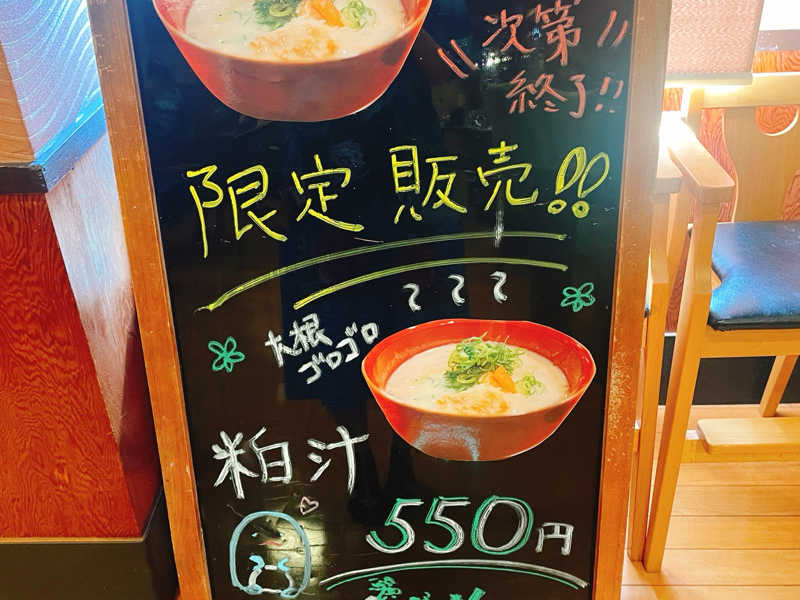 次第
終了!!
限定 販売!!
大根
ゴロゴロ
粕汁
550円